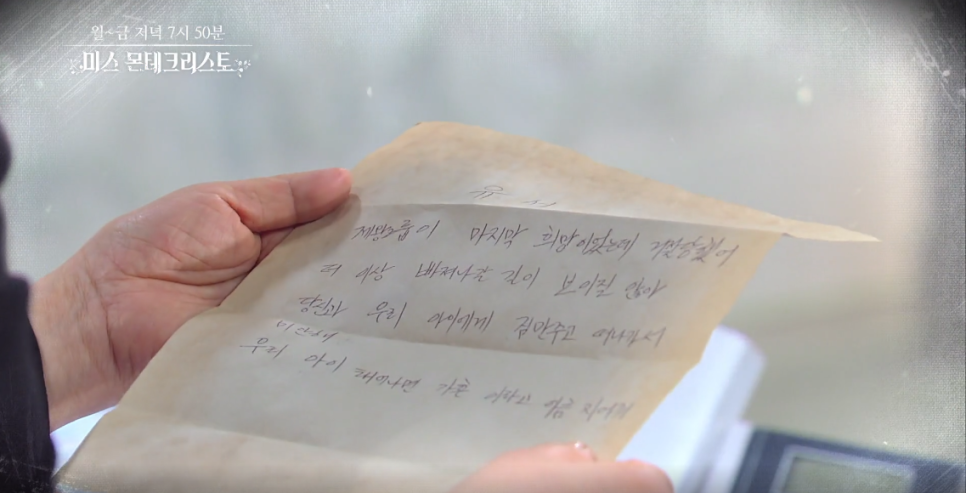 월~금 저녁 7시 50분
미스 몬테크리스토
유서
제왕그룹이 마지막 희망이었는데 거절당했어
더 이상 빠져나갈 길이 보이질 않아
당신과 우리 아이에게 짐만주고 떠나가서
미안해
우리 아이 태어나면 가흔 이라고 이름 지어줘